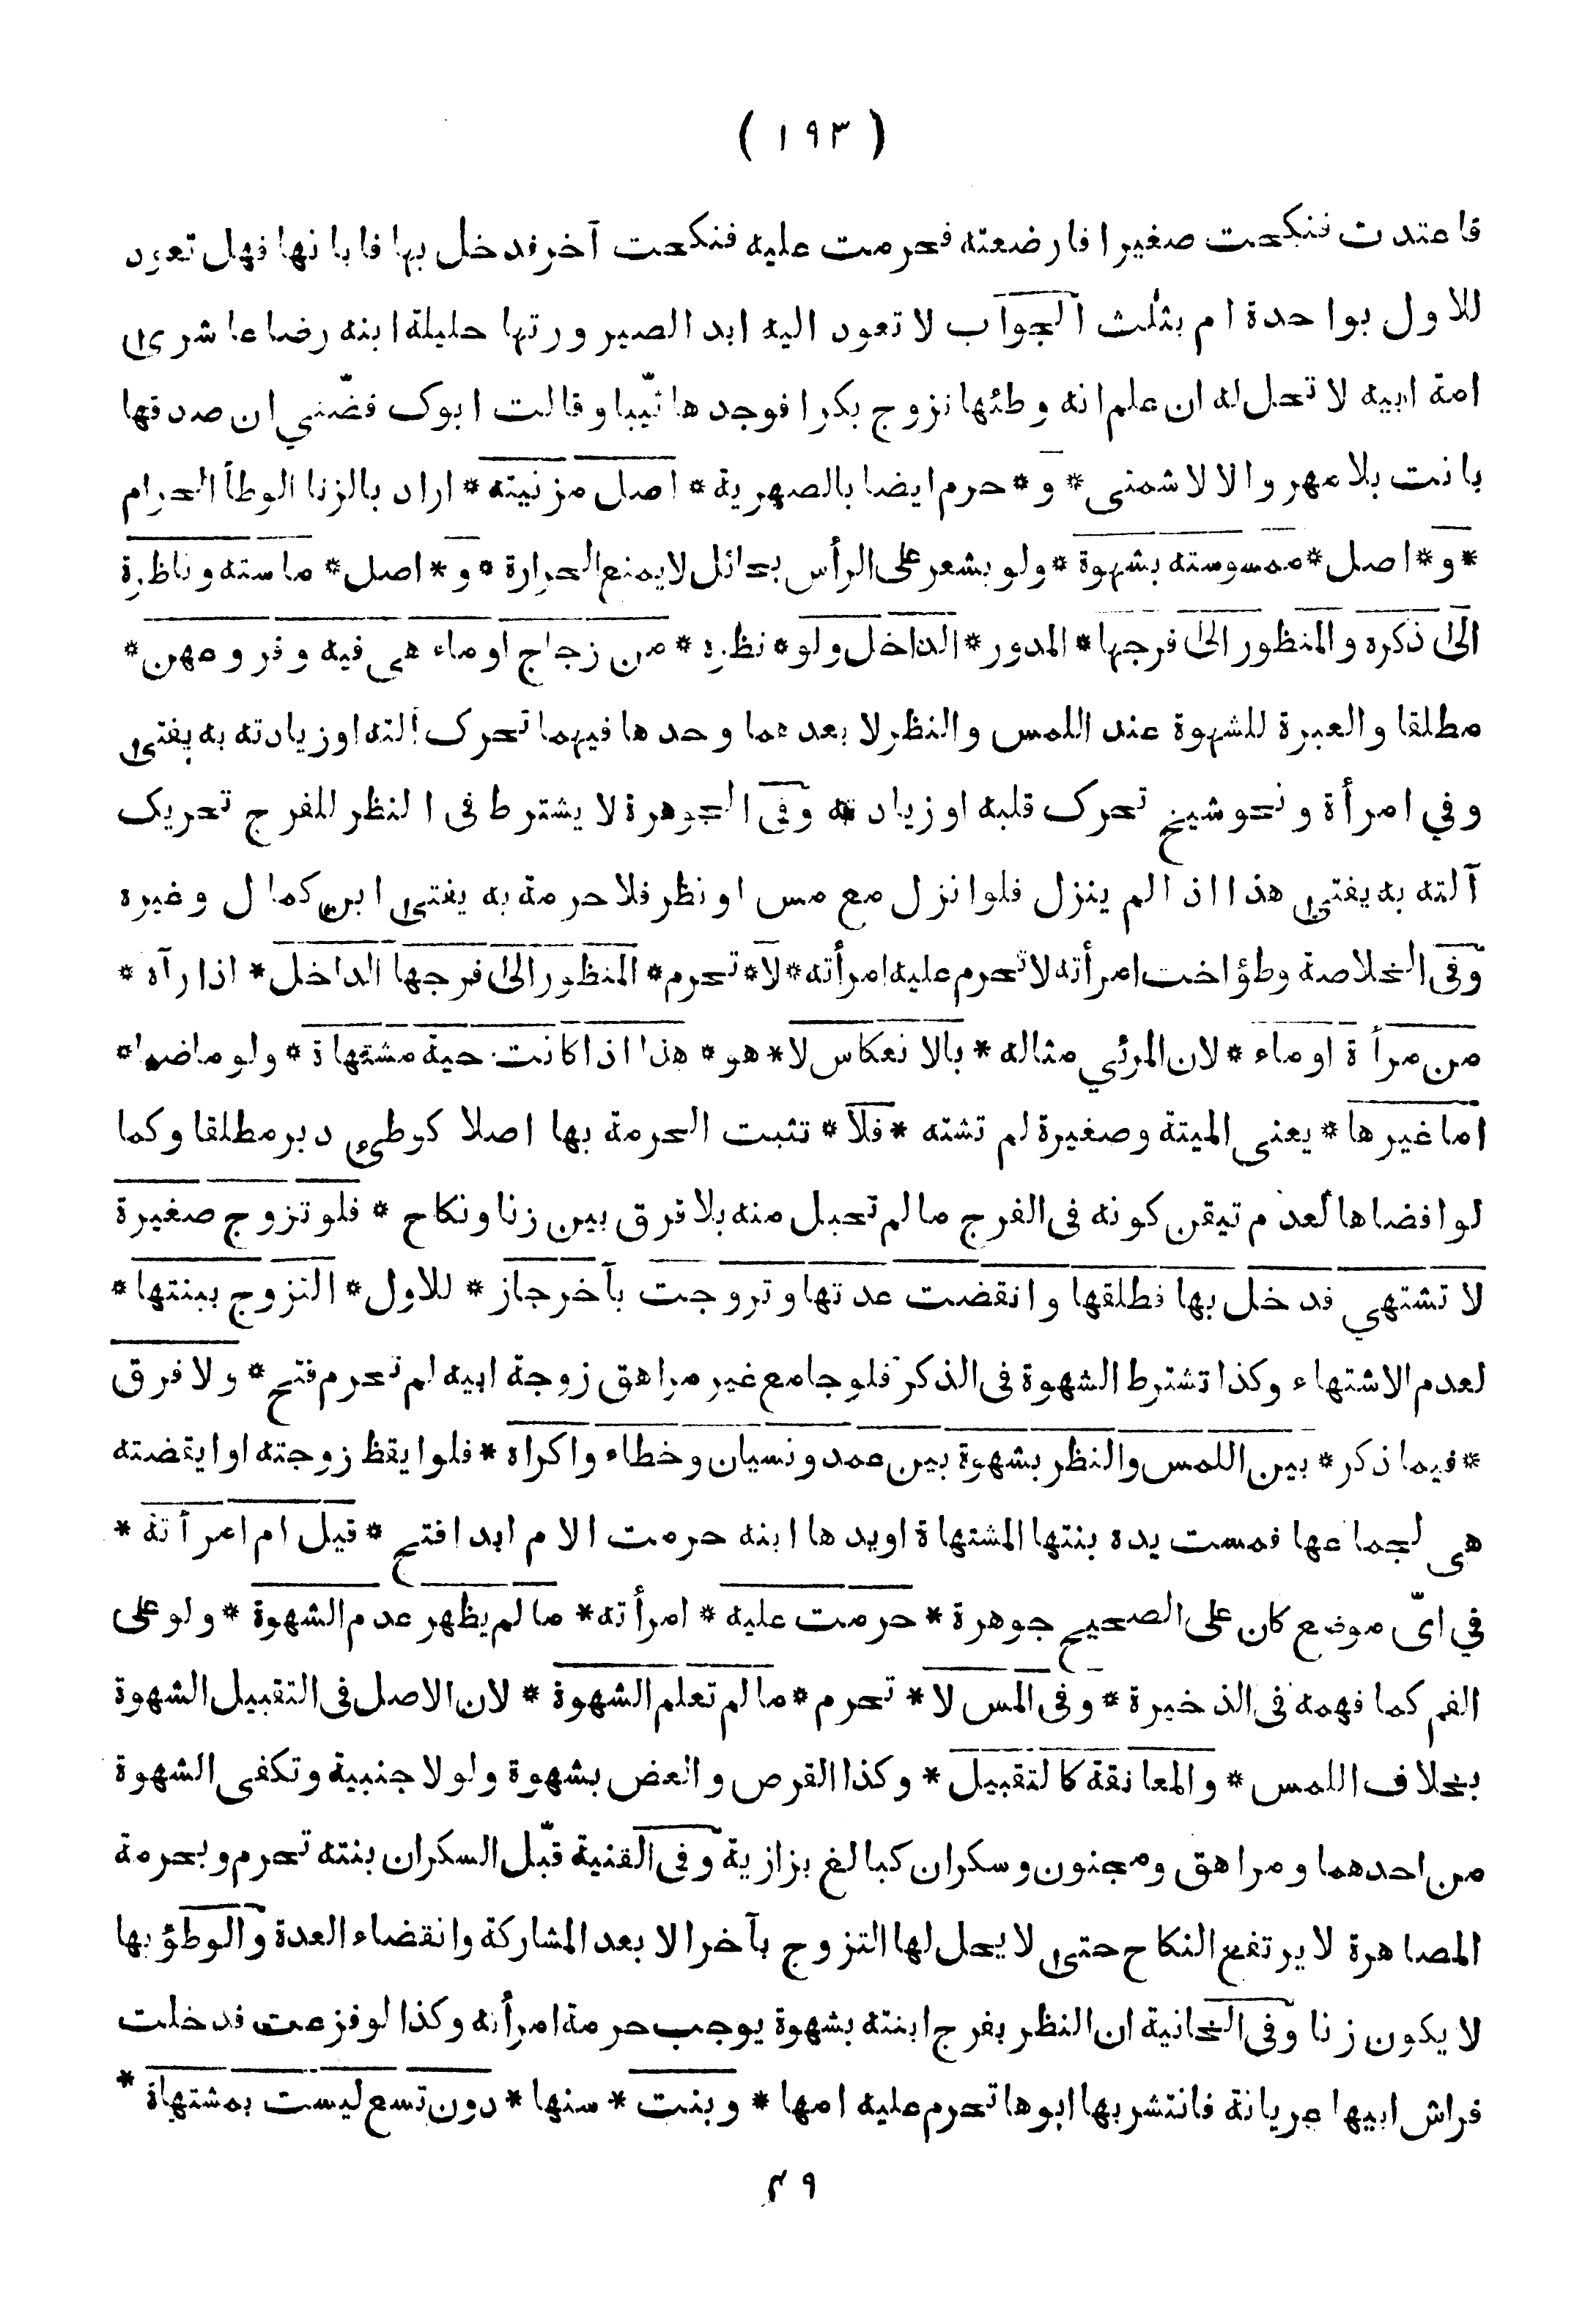 ( ١٩٣ )
فاعتدت فنكحت صغيرا فارضعته فحرمت عليه فنكحت آخر فدخل بها فابانها فهل تعود
للاول بواحدة ام بثلث الجواب لا تعود اليه ابدا لصيرورتها حليلة ابنه رضاعا شرى
امة ابيه لا تحل له ان علم انه وطئها تزوج بكرا فوجدها ثيّبا وقالت ابوك فضّني ان صدقها
بانت بلا مهر والا لا شمنى * و * حرم ايضا بالصهرية * اصل مزنيته * اراد بالزنا الوطأ الحرام
* و * اصل * ممسوسته بشهوة * ولو بشعر على الرأس بحائل لا يمنع الحرارة * و * اصل * ماسته وناظرة
الى ذكره والمنظور الى فرجها * المدور * الداخل ولو * نظره * من زجاج او ماء هى فيه وفروعهن *
مطلقا والعبرة للشهوة عند اللمس والنظر لا بعدهما وحدها فيهما تحرك آلته او زيادته به يفتى
وفي امرأة ونحو شيخ تحرك قلبه او زيادته وفى الجوهرة لا يشترط فى النظر للفرج تحريك
آلته به يفتى هذا اذا لم ينزل فلو انزل مع مس او نظر فلا حرمة به يفتى ابن كمال وغيره
وفى الخلاصة وطؤ اخت امرأته لا تحرم عليه امرأته * لا * تحرم * المنظور الى فرجها الداخل * اذا رآه *
من مرأة او ماء * لان المرئي مثاله * بالانعكاس لا * هو * هذا اذا كانت حية مشتهاة * ولو ماضيا *
اما غيرها * يعنى الميتة وصغيرة لم تشته * فلا * تثبت الحرمة بها اصلا كوطىء دبر مطلقا وكما
لو افضاها لعدم تيقن كونه فى الفرج ما لم تحبل منه بلا فرق بين زنا ونكاح * فلو تزوج صغيرة
لا تشتهي فدخل بها فطلقها وانقضت عدتها وتزوجت بآخر جاز * للاول * التزوج ببنتها *
لعدم الاشتهاء وكذا تشترط الشهوة فى الذكر فلو جامع غير مراهق زوجة ابيه لم تحرم فتح * ولا فرق
* فيما ذكر * بين اللمس والنظر بشهوة بين عمد ونسيان وخطاء واكراه * فلو ايقظ زوجته او ايقضته
هى لجماعها فمست يده بنتها المشتهاة او يدها ابنه حرمت الام ابدا فتح * قبل ام امرأته *
في اىّ موضع كان على الصحيح جوهرة * حرمت عليه * امرأته * ما لم يظهر عدم الشهوة * ولو على
الفم كما فهمه فى الذخيرة * وفى المس لا * تحرم * ما لم تعلم الشهوة * لان الاصل فى التقبيل الشهوة
بخلاف اللمس * والمعانقة كالتقبيل * وكذا القرص والعض بشهوة ولو لاجنبية وتكفى الشهوة
من احدهما ومراهق ومجنون وسكران كبالغ بزازية وفى القنية قبّل السكران بنته تحرم وبحرمة
المصاهرة لا يرتفع النكاح حتى لا يحل لها التزوج بآخر الا بعد المشاركة وانقضاء العدة والوطؤ بها
لا يكون زنا وفى الخانية ان النظر بفرج ابنته بشهوة يوجب حرمة امرأته وكذا لو فزعت فدخلت
فراش ابيها عريانة فانتشر بها ابوها تحرم عليه امها * وبنت * سنها * دون تسع ليست بمشتهاة *
٤٩